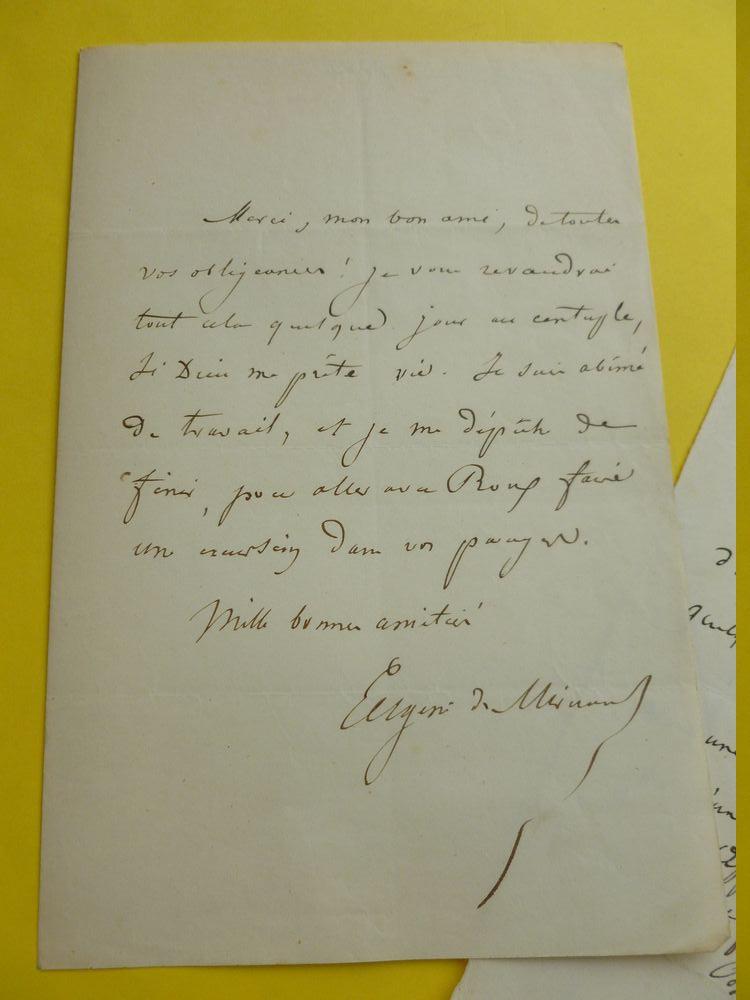 Merci, mon bon ami, de toutes
vos obligeances ! je vous revaudrai
tout cela quelque jour au centuple,
Si Dieu me prête vie. Je suis abîmé
de travail, et je me dépêche de
finir, pour aller avec Roux faire
une excursion dans vos parages.
Mille bonnes amitiés
Eugène de Mirecourt
une